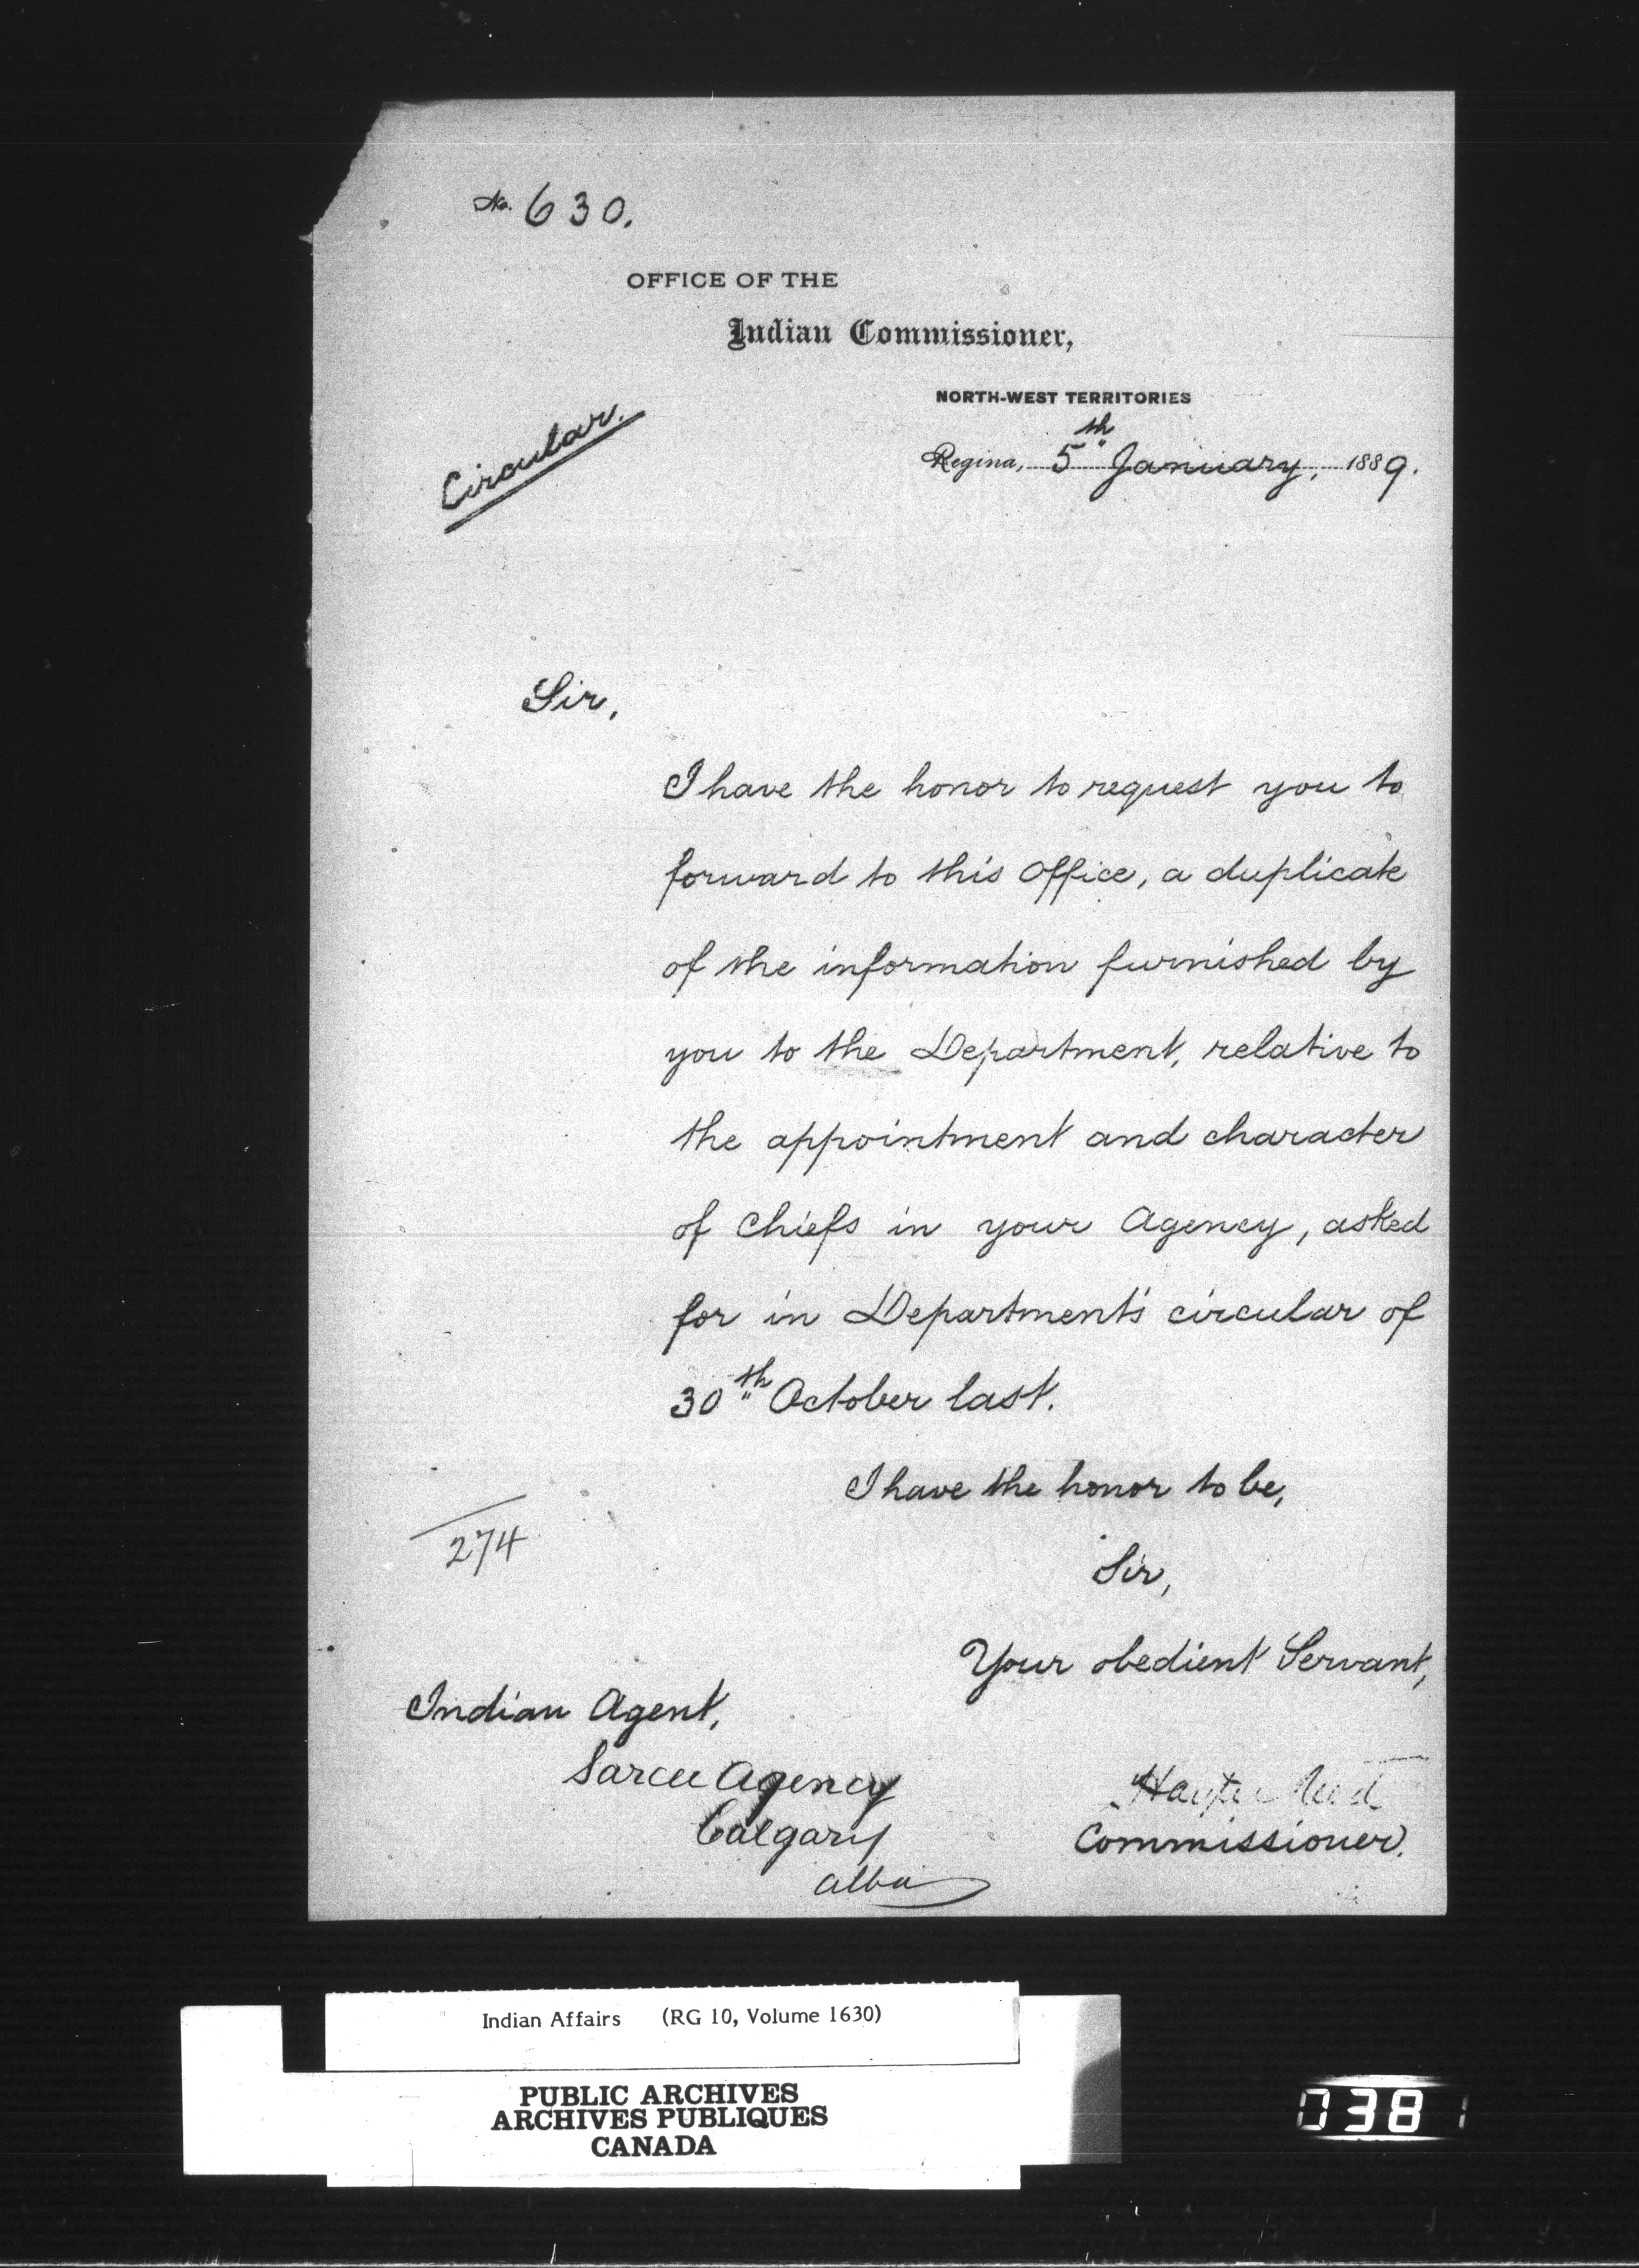 No. 630.
OFFICE OF THE
Indian Commissioner,
NORTH-WEST TERRITORIES
Circular.
Regina, 5th January, 1889.
Sir,
I have the honor to request you to
forward to this Office, a duplicate
of the information furnished by
you to the Department, relative to
the appointment and character
of Chiefs in your Agency, asked
for in Department's circular of
30th October last.
I have the honor to be,
274
Sir,
Your obedient Servant,
Indian Agent,
Sarcee Agency
Calgary
Alba
Hayter Reed
Commissioner.
Indian Affairs (RG 10, Volume 1630)
PUBLIC ARCHIVES
ARCHIVES PUBLIQUES
CANADA
0381